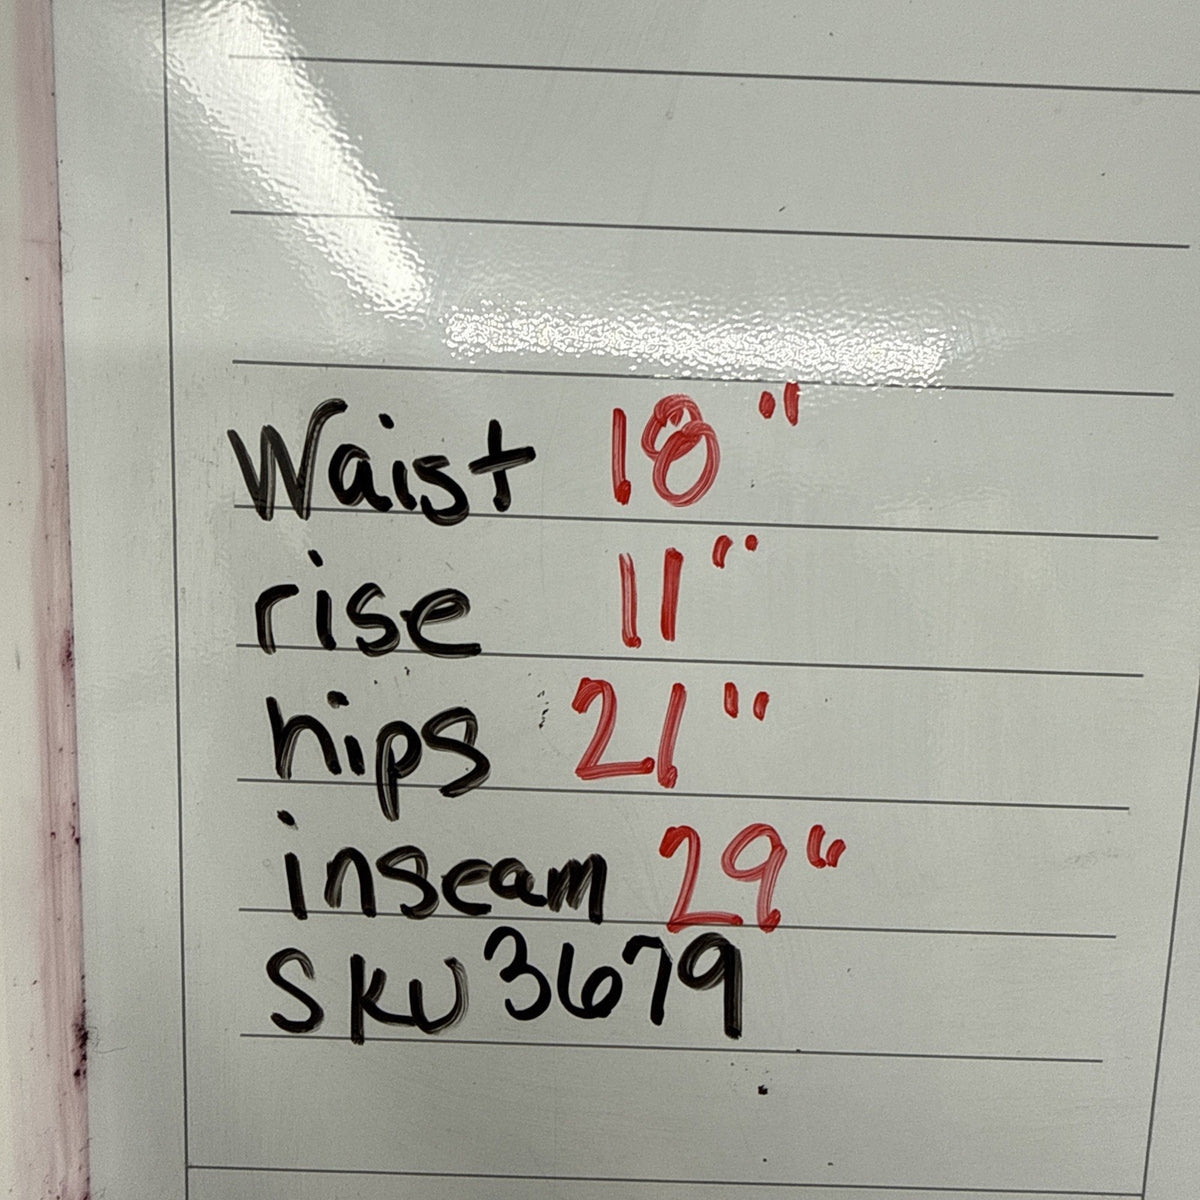 Waist 18"
rise 11"
hips 21"
inseam 29"
SKU 3679